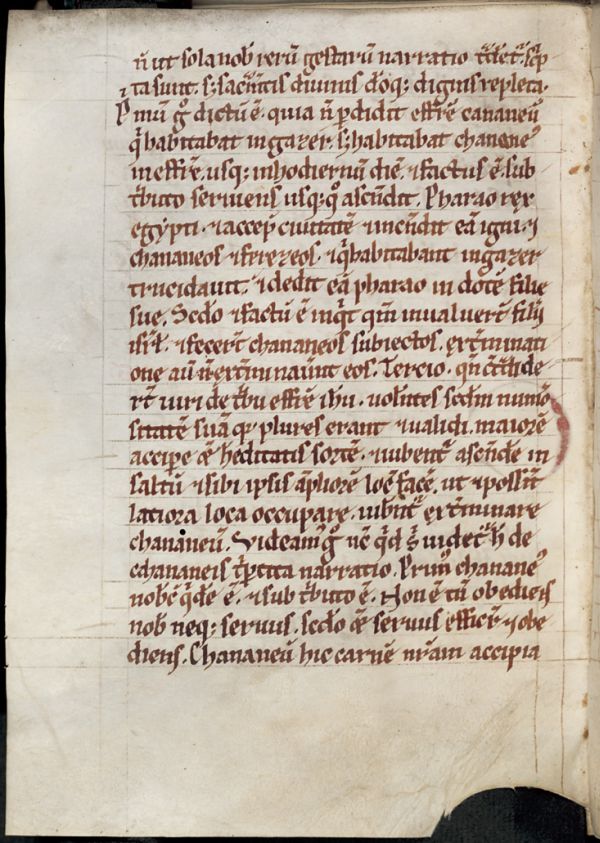 n̄ ut sola nob̄ rerū gestarū narratio
ita sunt. s; sacm̄tis diuinis dōq; dignis repleta.
Pmū gͦ dictū ē. quia n̄ ꝑdidit effrē cananeū
q̄ habitabat in gazer. s; habitabat chanane᾿
in effrē. usq; in hodiernū diē. ⁊ factus ē. sub
t̄buto seruiens usq; qͦ ascendit. Pharao rex
egypti. ⁊ accep̄ ciuitatē ⁊ incendit eā igni. ⁊
chananeos ⁊ ferezeos. ⁊ q̄ habitabant in gazer
trucidauit. ⁊ dedit eā pharao in dotē filie
sue. Scdo ⁊ factū ē inq̄t qm̄ inualuerͭ filij
isr̄l. ⁊ fecerͭ chananeos subiectos. ext̄minati
one aū n̄ ext̄minauēr̄t eos. Tercio. qn̄
rͭ uiri de t̄bu effrē ih̄u. uolentes scdm̄ numō
sitatē suā qꝛ plures erant ⁊ ualidi. maiorē
accipe œ h̄editatis sortē. ⁊ iubentͬ ascende in
saltū ⁊ sibi ipsis āpliorē locū facē. ut ⁊ possīt
latiora loca occupare. iubentͬ ext̄minare
chananeū. Videam᾿ gͦ nc̄ q̄d s̄ uidetͬ h̄ de
chananeis t̄ptita narratio. Prim᾿ chanane᾿
nobc̄ q̄de ē. ⁊ sub t̄buto ē. Non ē tū obediens
nob̄ neq; seruus. scdo œ seruus efficitͬ ⁊ obe
diens. Chananeū hic carnē nr̄am accipia